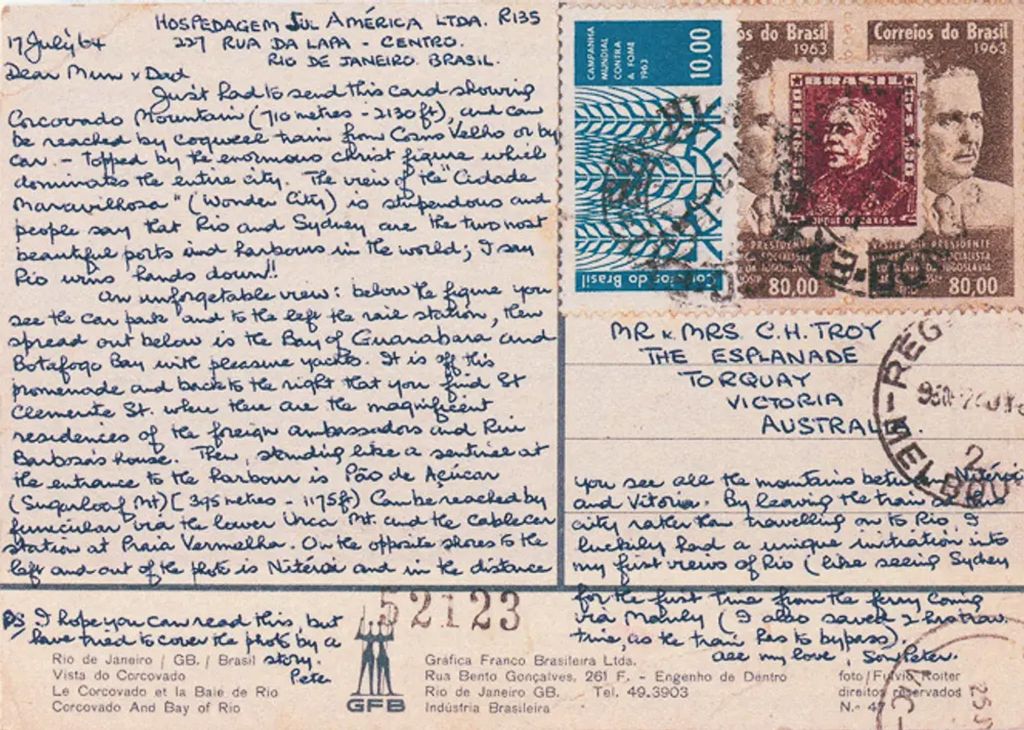 HOSPEDAGEM SUL AMÉRICA LTDA. R135
17 July 64
227 RUA DA LAPA - CENTRO.
RIO DE JANEIRO. BRASIL.
Dear Mum & Dad
Just had to send this card showing
Corcovado Mountain (710 metres - 2130ft), and can
be reached by cogweel train from Cosmo Velho or by
car. - Topped by the enormous Christ figure which
dominates the entire city. The view of the "Cidade
Maravilhosa" (Wonder City) is stupendous and
people say that Rio and Sydney are the two most
beautiful ports and harbours in the world; I say
Rio wins hands down!!
An unforgetable view: below the figure you
see the car park and to the left the rail station, then
spread out below is the Bay of Guanabara and
Botafogo Bay with pleasure yachts. It is off this
promenade and back to the right that you find St
Clemente St. where there are the magnificent
residences of the foreign ambassadors and Rui
Barbosa's house. Then, standing like a sentinel at
the entrance to the harbour is Pão de Açúcar
(Sugarloaf Mt) [395 metres - 1175ft) Can be reached by
funicular via the lower Urca Mt. and the cablecar
station at Praia Vermelha. On the opposite shores to the
left and out of the photo is Niterói and in the distance
CAMPANHA
MUNDIAL
CONTRA
A FOME
1963
10,00
Correios do Brasil
os do Brasil
1963
PRESIDENTE
80,00
BRASIL
DUQUE DE CAXIAS
Correios do Brasil
1963
VISITA DO PRESIDENTE
IUGOSLAVIA
80,00
MR & MRS. C.H. TROY
THE ESPLANADE
TORQUAY
VICTORIA
AUSTRALIA.
REG
MELBOU
2
you see all the mountains between Niterói
and Vitoria. By leaving the train at this
city rather than travelling on to Rio, I
luckily had a unique initiation into
my first views of Rio (like seeing Sydney
for the first time from the ferry coming
via Manly (I also saved 2 hrs train
time, as the train has to bypass).
All my love, Son Peter.
52123
PS I hope you can read this, but
have tried to cover the photo by a
story.
Peter
Rio de Janeiro / GB. / Brasil
Vista do Corcovado
Le Corcovado et la Baie de Rio
Corcovado And Bay of Rio
GFB
Gráfica Franco Brasileira Ltda.
Rua Bento Gonçalves, 261 F. - Engenho de Dentro
Rio de Janeiro GB. Tel. 49.3903
Indústria Brasileira
foto/Fulvio Roiter
direitos reservados
N.- 47